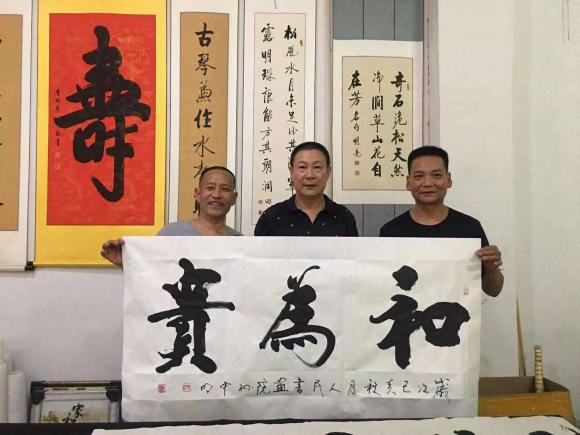 和為貴
歲次己亥秋月人民書画院
壽
古琴兼住水
松風水月未足比其
露明珠詎能方其朗潤
奇石 松天然
淨澗草山花自
在芳